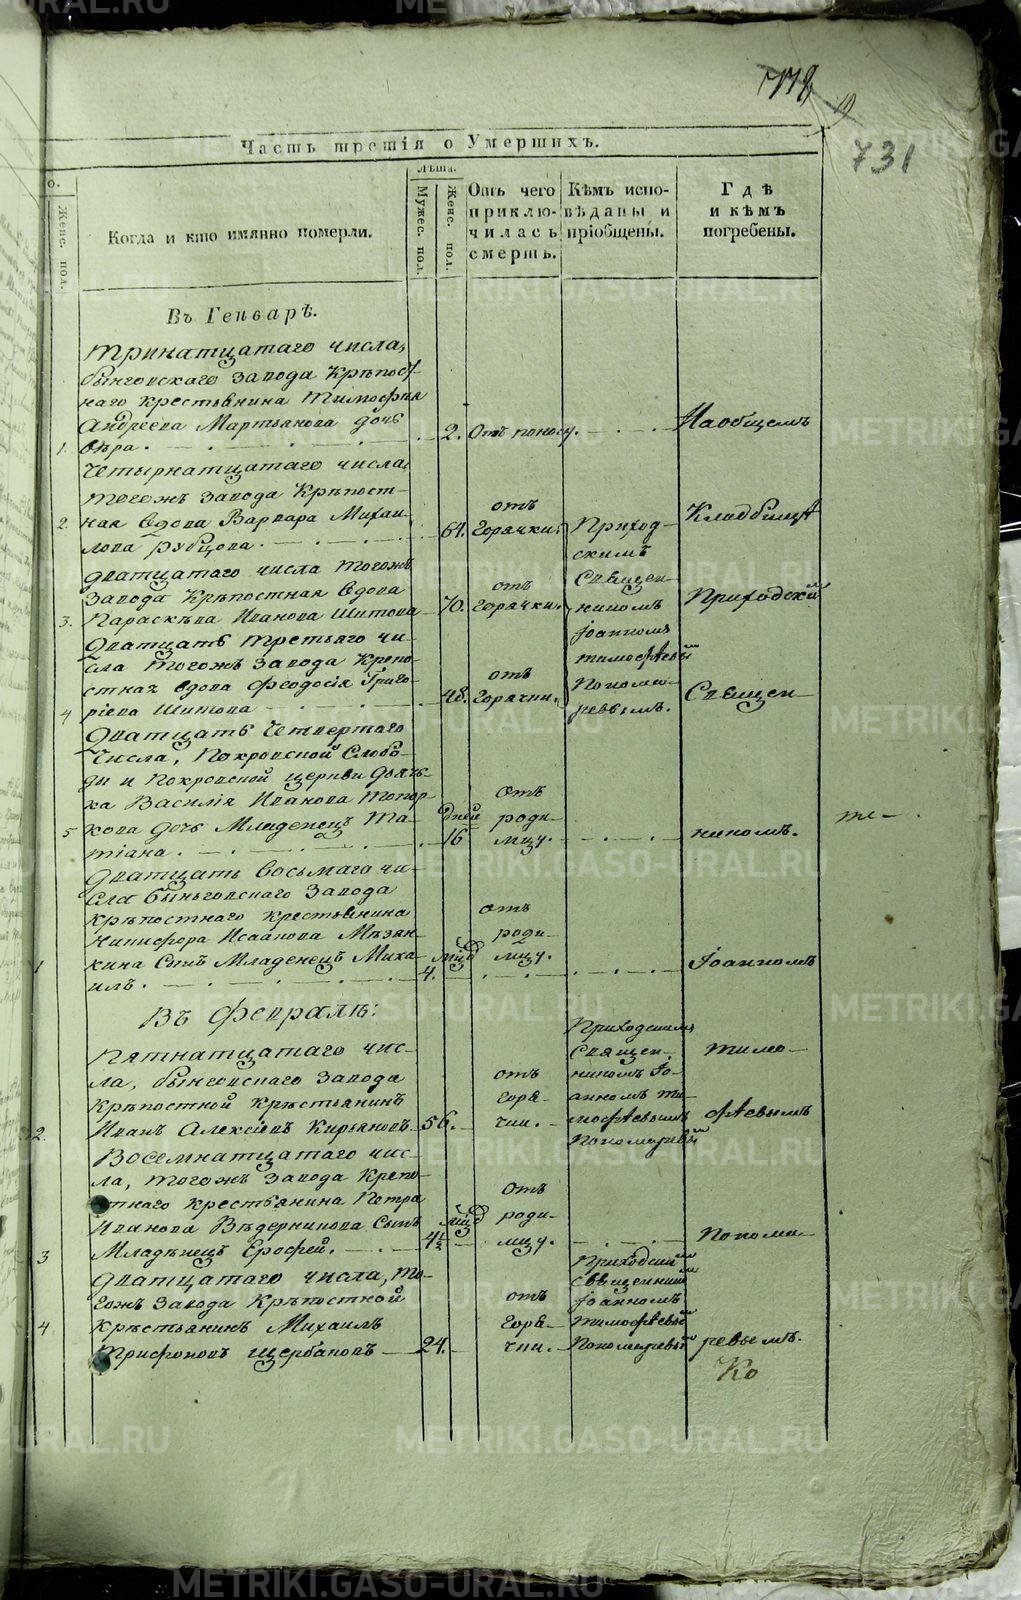 731
Часть третія о Умершихъ.
о.
Женс. пол.
Когда и кто имянно померли.
Лѣта.
Мужес. пол.
Женс. пол.
Отъ чего приклю-чилась смерть.
Кѣмъ испо-вѣданы и пріобщены.
Гдѣ и кѣмъ погребены.
Въ Генварѣ.
Тринатцатаго числа,
Быньговскаго завода Крѣпост-
наго крестьянина Тимофѣя
Андреева Мартьянова дочь
1. Вѣра. 2. Отъ поносу. На общемъ
Четырнатцатаго числа
тогожъ завода Крѣпост-
2. ная вдова Варвара Михаи-
лова Рубцова. 64. отъ Горячки. Кладбищѣ
Приход-
скимъ
Двадцатаго числа тогожъ
завода Крѣпостная вдова
3. Параскѣва Иванова Шитова 70. отъ Горячки. Приходской
Свещен-
никомъ
Іоанномъ
Двадцать третьяго чи-
сла тогожъ завода Крепо-
стная вдова Феодосія Григо-
4 ріева Шитова 48. отъ Горячки. Свещен-
тимофѣевы
Понома-
ревымъ.
Двадцать четвертаго
Числа, Покровской Слобо-
ды и Покровской церкви дьяч-
ка Василія Иванова Топор-
5 кова дочь Младенецъ Та-
тіана. дней 16 отъ роди-
мцу. никомъ. те-
Двадцать восьмаго чи-
сла Быньговскаго завода
крѣпостнаго крестьянина
Никифора Исакова Мѣзян-
1 кина Сынъ Младенецъ Миха-
илъ. 4. отъ роди-
мцу. Іоанномъ
Въ Февралѣ:
Пятнатцатаго чис-
ла, быньговскаго завода
Крѣпостной крѣстьянинъ
2. Иванъ Алексѣевъ Кирьяновъ 56. отъ горя-
чки. Приходскимъ
Священ-
никомъ Іо-
анномъ ти-
мофѣевымъ
Пономаревы
тимо-
фѣевымъ
Восемнатцатаго чис-
ла, тогожъ завода Крепо-
стнаго крестьянина Петра
Иванова Вѣдерникова Сынъ
3 Младѣнецъ Ерофей. 4½ отъ роди-
мцу. Понома-
Двадцатаго числа, то-
гожъ завода Крѣпостной
4 крѣстьянинъ Михаилъ
Трифоновъ Щербаковъ 24. отъ Горя-
чки. Приходский
Свещенник
Іоанномъ
тимофѣевы
Пономаревы ревымъ.
Ко
METRIKI.GASO-URAL.RU